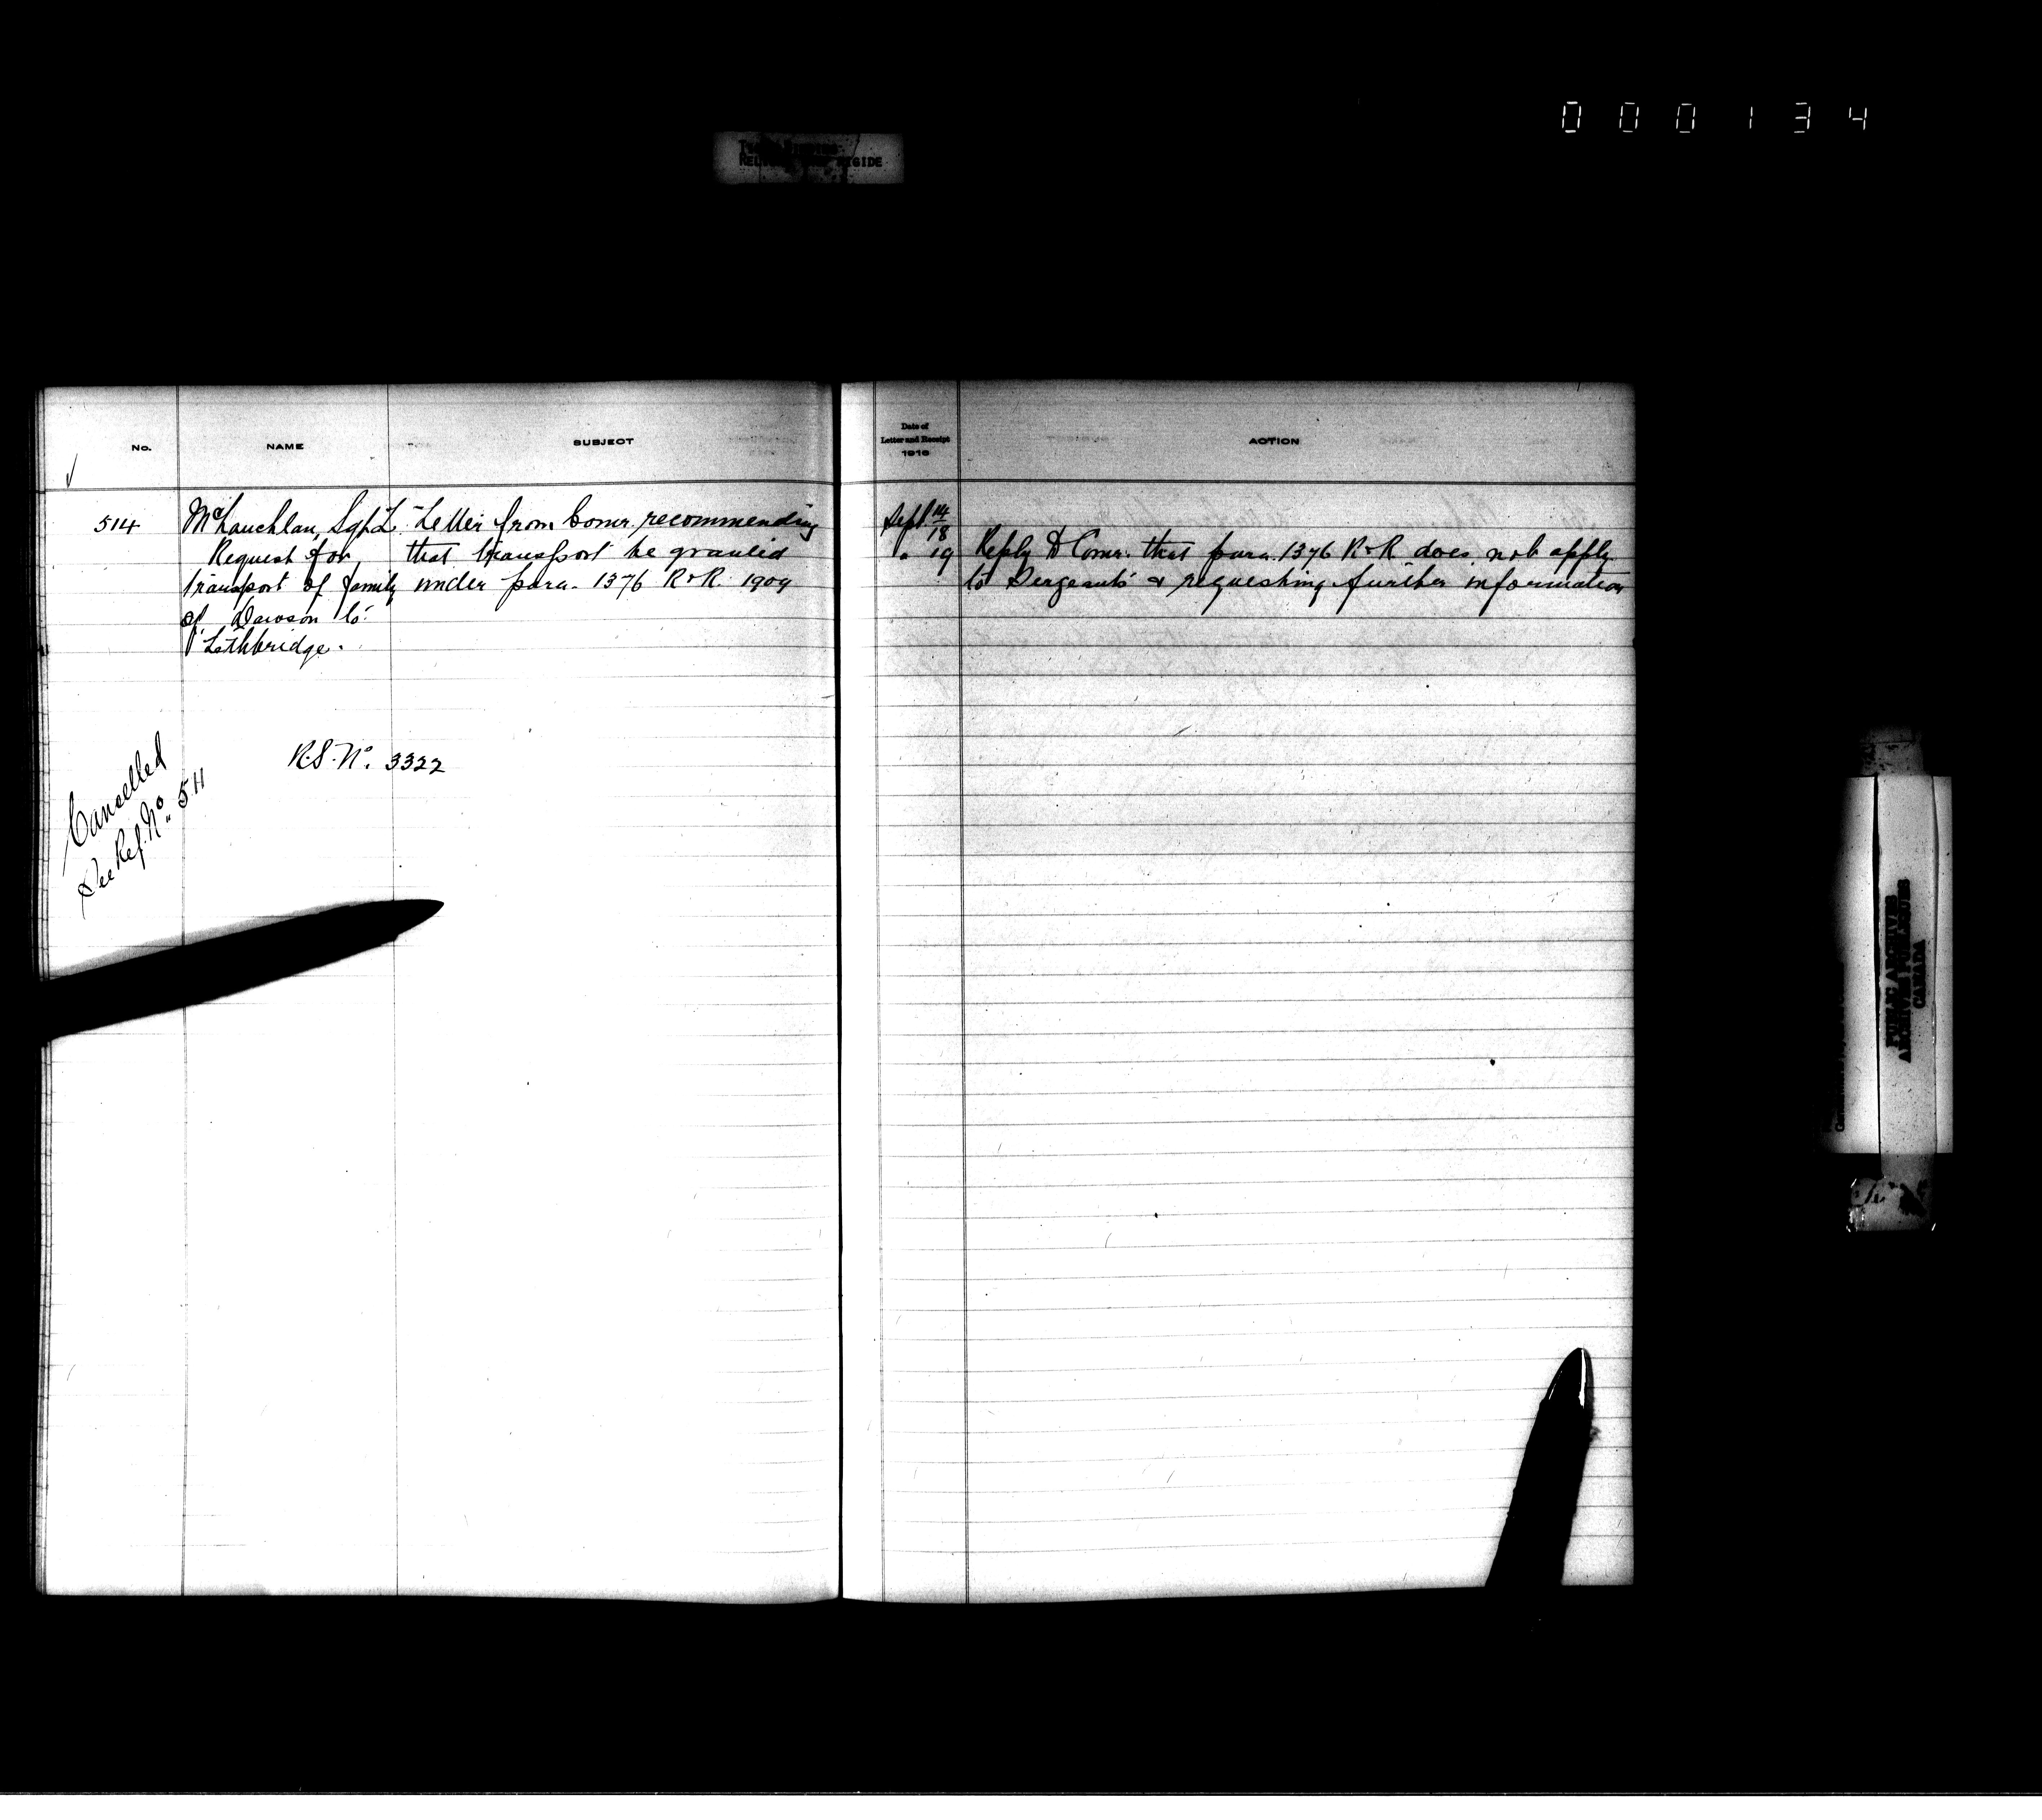 000134
No.
NAME
SUBJECT
514
McLauchlan, Sgt. L.
Request for
transport of family
of Dawson to
Lethbridge.
Letter from Comr. recommending
that transport be granted
under para. 1376 R & R. 1909
R.S. No. 3322
Cancelled
See Ref. No. 511
Date of
Letter and Receipt
1916
ACTION
Sept 14
18
" 19
Reply to Comr. that para. 1376 R & R does not apply
to Sergeants & requesting further information
PUBLIC ARCHIVES
ARCHIVES PUBLIQUES
CANADA